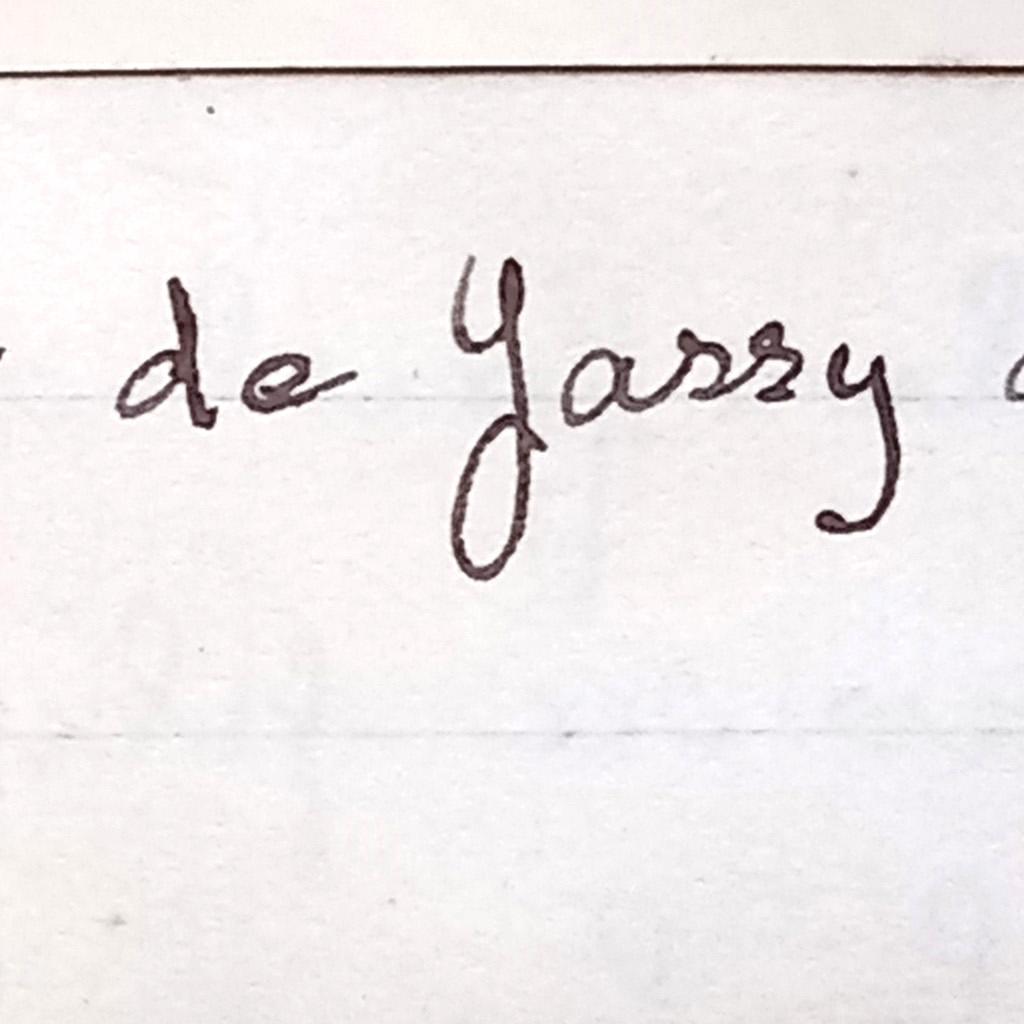 de Yassy